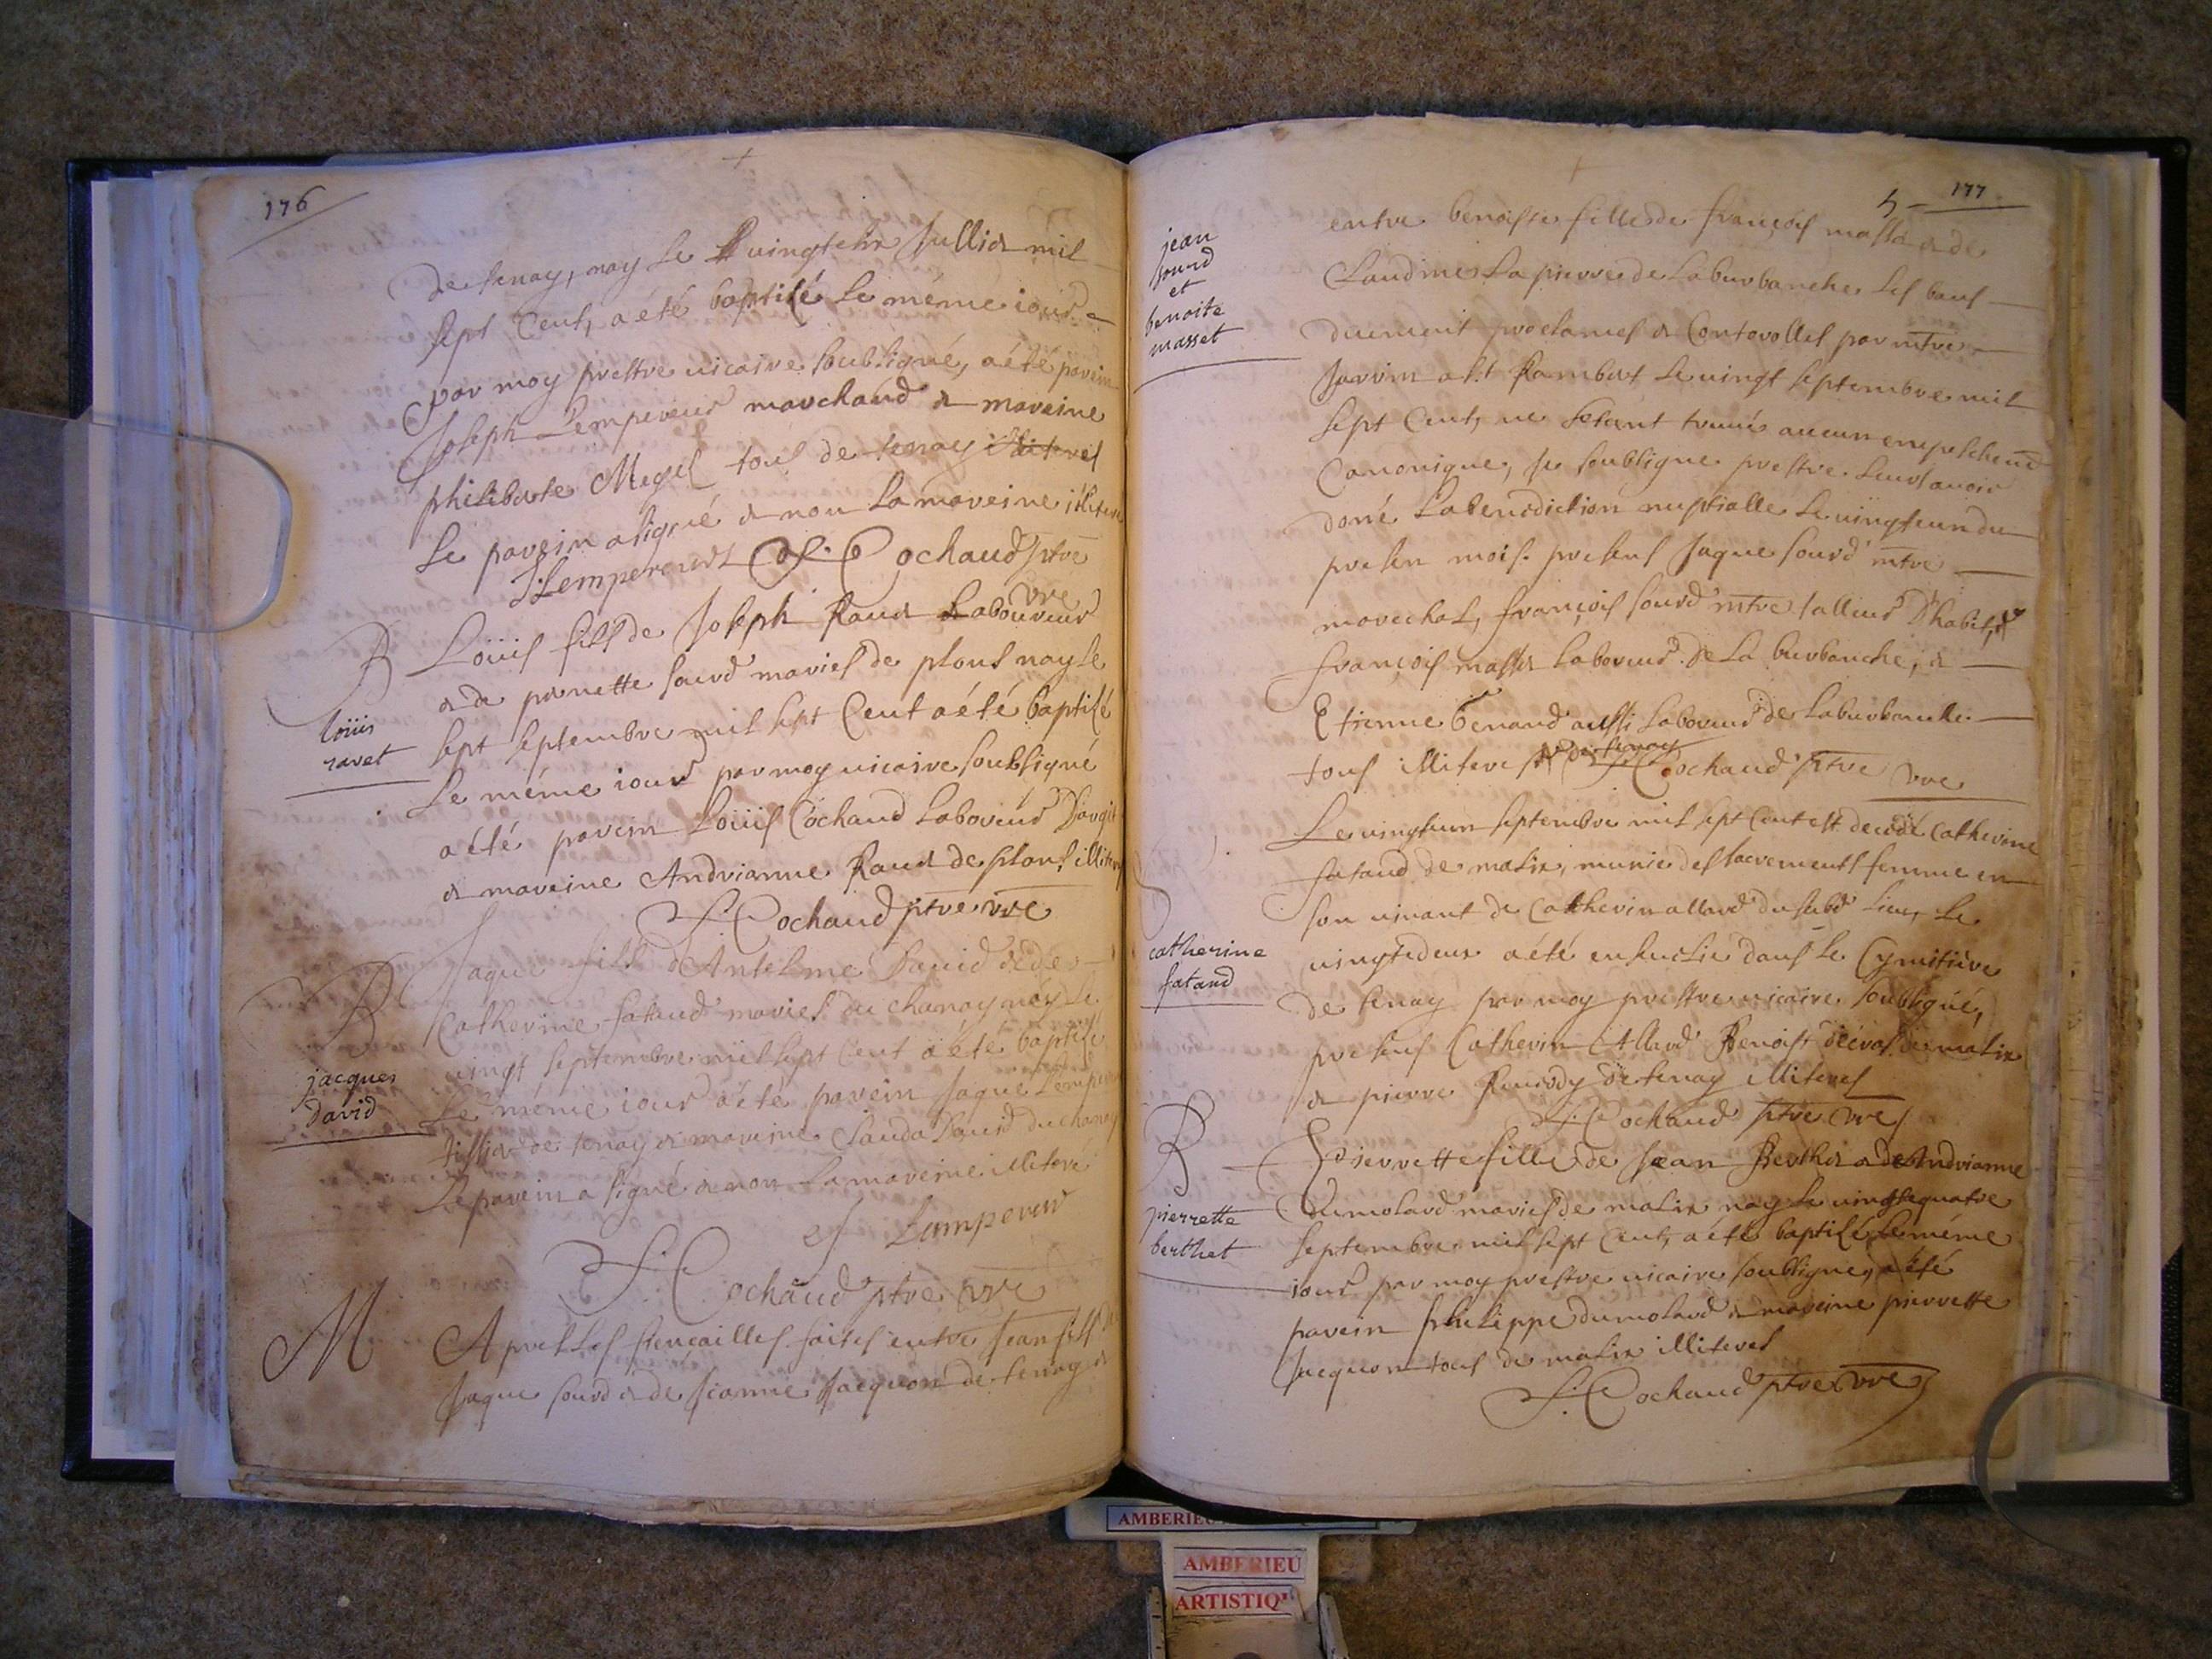 176
de tenay, nay le vingtesix Jullier mil
sept Cent, a été baptisé le méme iour
par moy prestre vicaire soubsigné, a été parein
Joseph Lempereur marchand & mareine
philiberte Megel tous de tenay
le parein a signé & non la mareine illiteré
J Lempereur S. Cochaud ptre
vre
B
Loüis fils de Joseph Rauet Laboureur
& de pernette sourd mariés de plons nay le
loüis
ravet
sept septembre mil sept Cent a été baptisé
le méme iour par moy vicaire soubsigné
a été parein Loüis Cochaud Laboreur Dargit
& mareine Andrianne Rauet de plons illiteres
S. Cochaud ptre vre
B
Jaque fils d'Antelme Dauid & de
Catherine fataud mariés du chanay nay le
jacques
david
vingt septembre mil sept Cent a été baptisé
le méme iour a été parein Jaque Lempereur
tissier de tenay & mareine Clauda Dauid du chanay
le parein a signé & non la mareine illiteré
J Lempereur
S. Cochaud ptre vre
M
Apres les fiençailles faites entre Jean fils de
Jaque sourd & de Jeanne Jacquon de tenay &
177
5
jean
sourd
et
benoite
masset
entre benoiste fille de françois masset & de
Claudine Lapierre de Laburbanche, les bans
duement proclamés & Controllés par mtre
Jarrin a st Rambert le vingt septembre mil
sept Cent, ne s'etant trouvé aucun empeschent
Canonique, Je soubsigne prestre leurs avoir
doné La benediction nuptialle le vingteun du
presen mois. presens Jaque sourd mtre
marechal, françois sourd mtre tallieur D'habit,
françois masset laboreur de La burbanche, &
Etienne Genaud aussi laboreur de Laburbanche
tous illiteres de tenay S. Cochaud ptre vre
Le vingteun septembre mil sept Cent est decedé Catherine
fataud de malix, munie des sacrements femme en
son vivant de Catherin allard dusubd lieu, le
catherine
fatand
vingtedeux a été enseuelie dans le Cymitiére
de tenay par moy prestre vicaire soubsigné,
presens Catherin Allard Benoist de malix
& pierre de tenay illiteres
S. Cochaud ptre vre
B
Pierrette fille de Jean Berthet & de Andrianne
pierrette
berthet
Dumolard mariés de malix nay le vingtequatre
septembre mil sept Cent, a été baptisé le méme
iour par moy prestre vicaire soubsigne, a été
parein philippe dumolard & mareine pierrette
Jacquon tous de malix illiteres
S. Cochaud ptre vre
AMBERIEU
AMBERIEU
ARTISTIQ